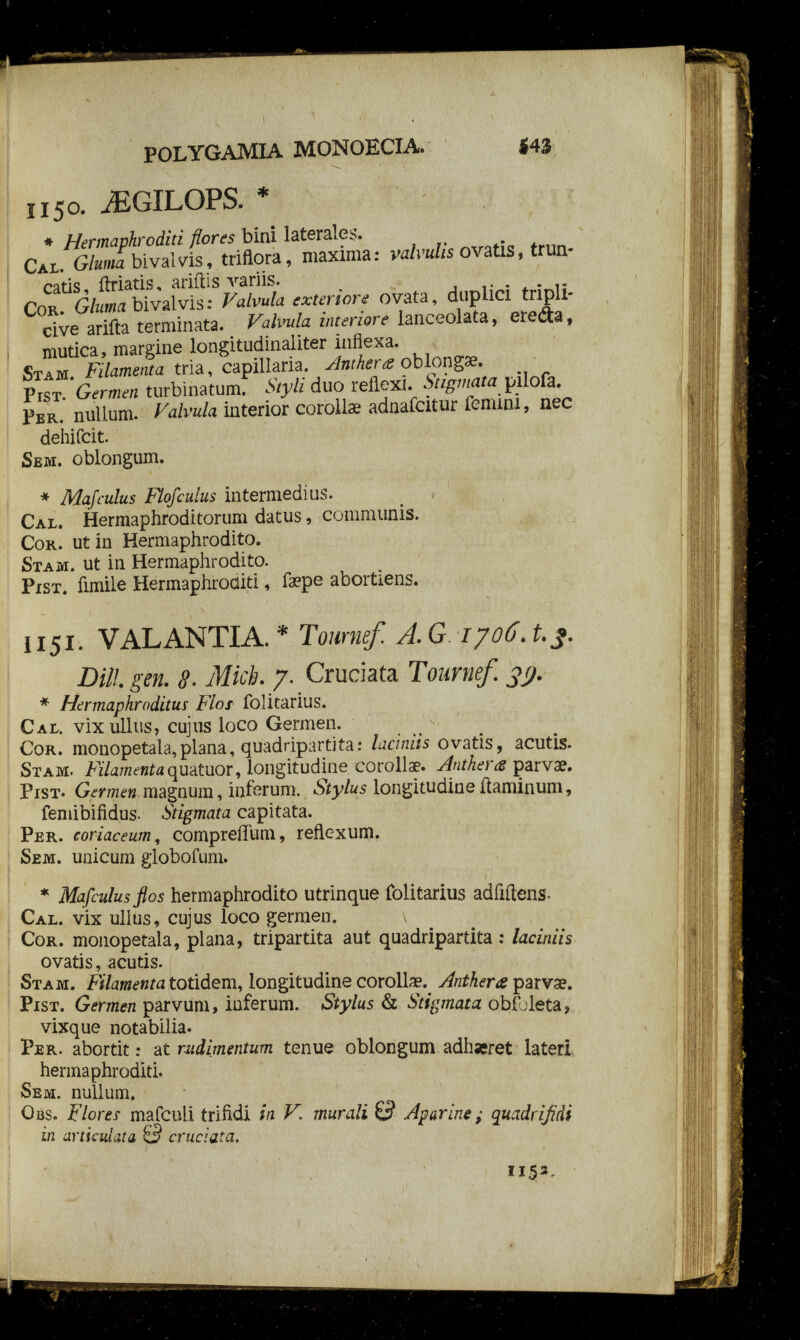 POLYGAMIA MONOECIA. 543
1150. ÆGILOPS. *
* Hermaphroditi flores bini laterales.
CAL. Gluma bivalvis, triflora, maxima: valvulis ovatis, trun-
catis, ſtriatis, ariſtis variis.
COR. Gluma bivalvis: Valvula exteriore ovata, duplici tripli-
cive ariſta terminata. Valvula interiore lanceolata, erecta,
mutica, margine longitudinaliter inflexa.
STAM. Filamenta tria, capillaria. Antheræ oblongæ.
PIST. Germen turbinatum. Styli duo reflexi. Stigmata piloſa.
PER. nullum. Valvula interior corollæ adnaſcitur ſemini, nec
dehiſcit.
SEM. oblongum.
* Maſculus Floſculus intermedius.
CAL. Hermaphroditorum datus, communis.
COR. ut in Hermaphrodito.
STAM. ut in Hermaphrodito.
PIST. ſimile Hermaphroditi, ſæpe abortiens.
1151. VALANTIA. * Tournef. A. G. 1706. t. 3.
Dill. gen. 8. Mich. 7. Cruciata Tournef. 39.
* Hermaphroditus Flos ſolitarius.
CAL. vix ullus, cujus loco Germen.
COR. monopetala, plana, quadripartita: laciniis ovatis, acutis.
STAM. Filamenta quatuor, longitudine corollæ. Antheræ parvæ.
PIST. Germen magnum, inferum. Stylus longitudine ſtaminum,
ſemibifidus. Stigmata capitata.
PER. coriaceum, compreſſum, reflexum.
SEM. unicum globoſum.
* Maſculus flos hermaphrodito utrinque ſolitarius adſiſtens.
CAL. vix ullus, cujus loco germen.
COR. monopetala, plana, tripartita aut quadripartita: laciniis
ovatis, acutis.
STAM. Filamenta totidem, longitudine corollæ. Antheræ parvæ.
PIST. Germen parvum, inferum. Stylus & Stigmata obſoleta,
vixque notabilia.
PER. abortit: at rudimentum tenue oblongum adhæret lateri
hermaphroditi.
SEM. nullum.
OBS. Flores maſculi trifidi in V. murali & Aparine; quadrifidi
in articulata & cruciata.
1152.